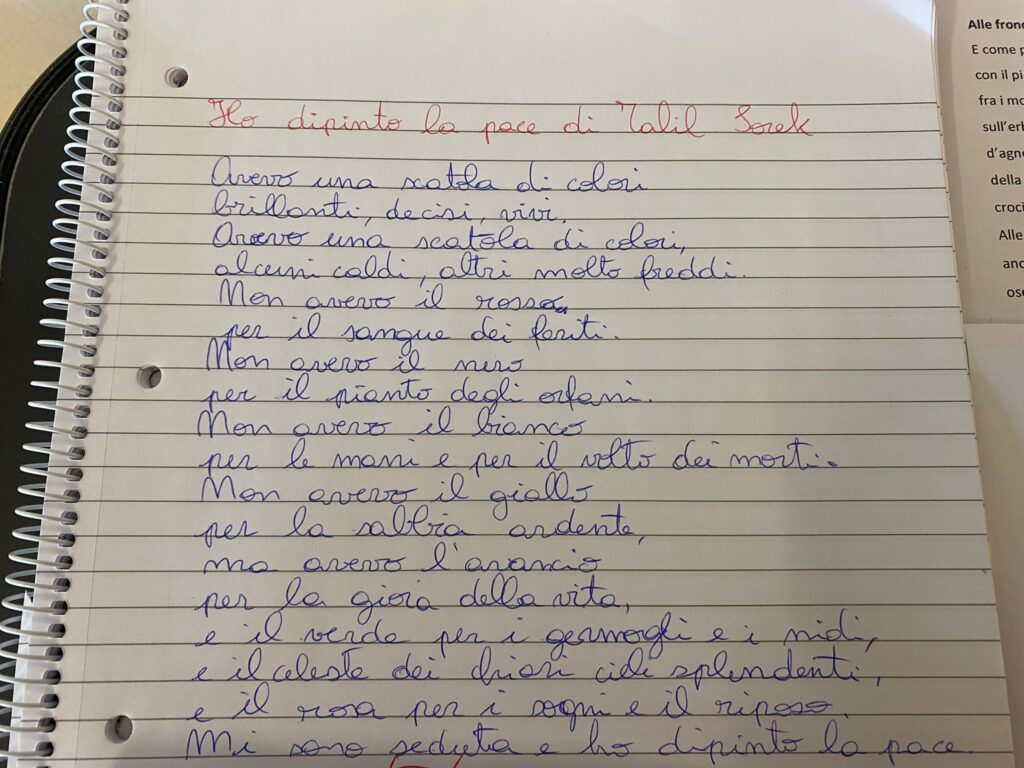 Ho dipinto la pace di Talil Sorek
Avevo una scatola di colori
brillanti, decisi, vivi.
Avevo una scatola di colori,
alcuni caldi, altri molto freddi.
Non avevo il rosso
per il sangue dei feriti.
Non avevo il nero
per il pianto degli orfani.
Non avevo il bianco
per le mani e per il volto dei morti.
Non avevo il giallo
per la sabbia ardente,
ma avevo l'arancio
per la gioia della vita,
e il verde per i germogli e i nidi,
e il celeste dei chiari cieli splendenti,
e il rosa per i sogni e il riposo.
Mi sono seduta e ho dipinto la pace.
Alle fron
E come
con il pi
fra i mo
sull'erb
d'agne
della
croci
Alle
anc
ose